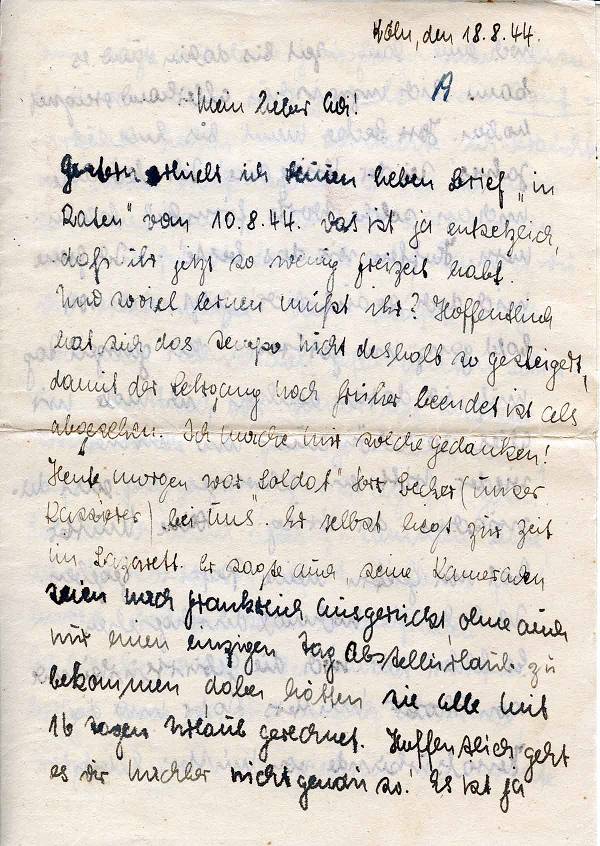 Köln, den 18.8.44.
A
Mein lieber Adi!
Gestern erhielt ich deinen lieben Brief „in
Raten" vom 10.8.44. Das ist ja entsetzlich,
daß ihr jetzt so wenig Freizeit habt.
Und soviel lernen müßt ihr? Hoffentlich
hat sich das Tempo nicht deshalb so gesteigert,
damit der Lehrgang noch früher beendet ist als
abgesehen. Ich mache mir solche Gedanken!
Heute morgen war Soldat" Herr Becher (unser
Kassierer) bei uns". Er selbst liegt zur Zeit
im Lazarett. Er sagte auch, seine Kameraden
seien nach Frankreich ausgerückt, ohne auch
nur einen einzigen Tag Abstellurlaub zu
bekommen dabei hätten sie alle mit
16 Tagen Urlaub gerechnet. Hoffentlich geht
es dir nachher nicht genau so! Es ist ja